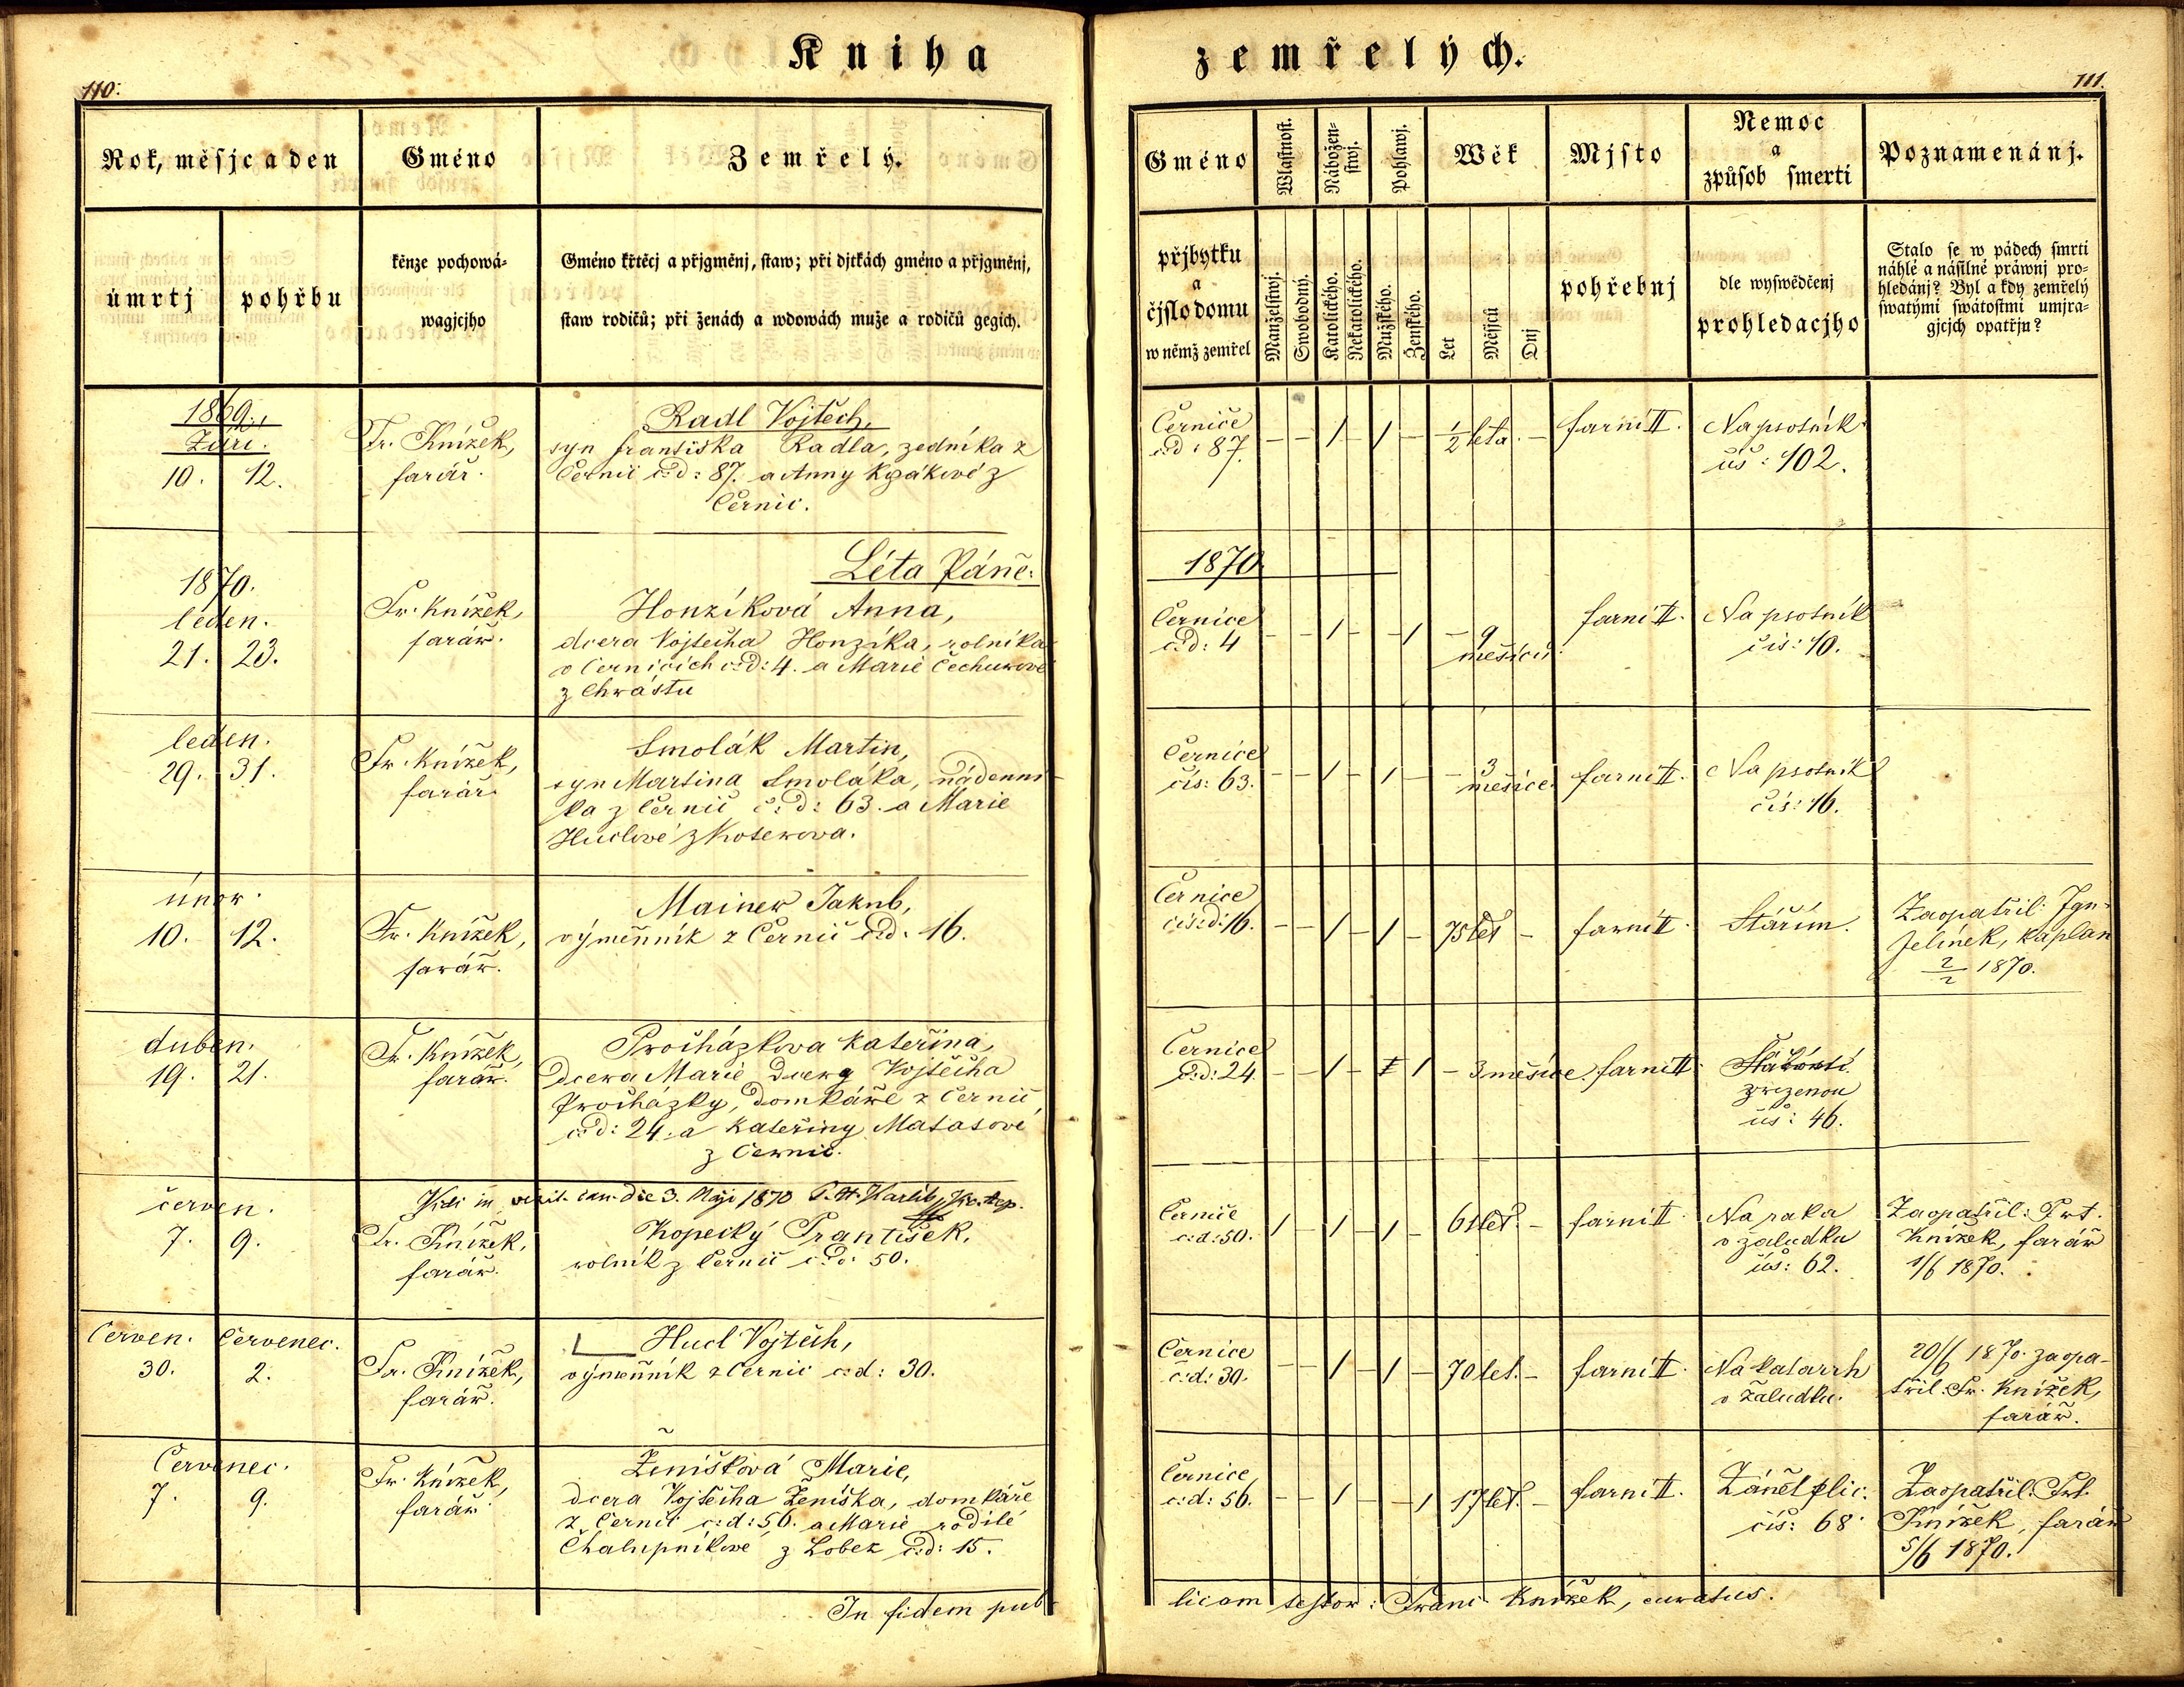 Kniha zemřelých.
110.
111.
Rok, měsjc a den
Gméno
Zemřelý.
úmrtj
pohřbu
kěnze pochowá-
wagjcjho
Gméno křtěcj a přjgměnj, staw; při djtkách gméno a přjgměnj,
staw rodičů; při ženách a wdowách muže a rodičů gegich.
Gméno
Wlastnost.
Nábožen-
stwj.
Pohlawj.
Wěk
Mjsto
Nemoc
a
způsob smerti
Poznamenánj.
přjbytku
a
čjslo domu
w němž zemřel
Manželstwj.
Swobodný.
Katolického.
Nekatolického.
Mužského.
Ženského.
Let
Měsjců
Dnj
pohřebnj
dle wyswědčenj
prohledacjho
Stalo se w pádech smrti
náhlé a násilné práwnj pro-
hledánj? Byl a kdy zemřelý
swatými swátostmi umjra-
gjcjch opatřjn?
1869.
Září.
10. 12.
Fr. Knížek,
farář.
Radl Vojtěch,
syn františka Radla, zedníka z
Černic č:d: 87. a Anny z
Černic.
Černice
č:d: 87.
– – / – / – ½ léta. –
farní II.
Na psotník
čís: 102.
Léta Páně: 1870
1870.
leden.
21. 23.
Fr. Knížek,
farář.
Honzíková Anna,
dcera Vojtěcha Honzíka, rolníka
v Černicích č:d: 4. a Marie Čechurové
z Chrástu
Černice
č:d: 4
– – / – – / – 9
měsíců.
farní II.
Na psotník
čís: 10.
leden.
29. 31.
Fr. Knížek,
farář.
Smolák Martin,
syn Martina Smoláka, nádenní-
ka z Černic č:d: 63. a Marie
Huclové z Koterova.
Černice
čís: 63.
– – / – / – – 3
měsíce.
farní II.
Na psotník
čís: 16.
únor.
10. 12.
Fr. Knížek,
farář.
Mainer Jakub,
výměnník z Černic č:d: 16.
Černice
čís:d: 16.
– – / – / – 75 let –
farní II.
Stářím.
Zaopatřil: Ign.
Jelínek, kaplan
2/2 1870.
duben.
19. 21.
Fr. Knížek,
farář.
Procházkova Kateřina,
dcera Marie dcery Vojtěcha
Procházky, domkáře z Černic,
č:d: 24. a Kateřiny Matasové
z Černic.
Černice
č:d: 24.
– – / – / – 3 měsíce.
farní II.
zřízenou
čís: 46.
Vidi in visit. can. die 3. Maji 1870
červen.
7. 9.
Fr. Knížek,
farář.
Kopecký František,
rolník z Černic č:d: 50.
Černice
č:d: 50.
/ – / – / – 61 let. –
farní II.
Na raka
v žaludku
čís: 62.
Zaopatřil: Frt.
Knížek, farář
1/6 1870.
Červen. Červenec.
30. 2.
Fr. Knížek,
farář.
Hucl Vojtěch,
výměnník z Černic č:d: 30.
Černice
č:d: 30.
– – / – / – 70 let. –
farní II.
Na katarrh
v žaludku.
20/6 1870. zaopa-
třil: Fr. Knížek,
farář.
Červenec.
7. 9.
Fr. Knížek,
farář
Ženíšková Marie,
dcera Vojtěcha Ženíška, domkáře
z Černic č:d: 56. a Marie rodilé
Chalupníkové z Lobez č:d: 15.
Černice,
č:d: 56.
– – / – – / 17 let. –
farní II.
Zánět plic.
čís: 68.
Zaopatřil: Frt.
Knížek, farář
5/6 1870.
In fidem pub-
licam testor: Franc. Knížek, curatus.